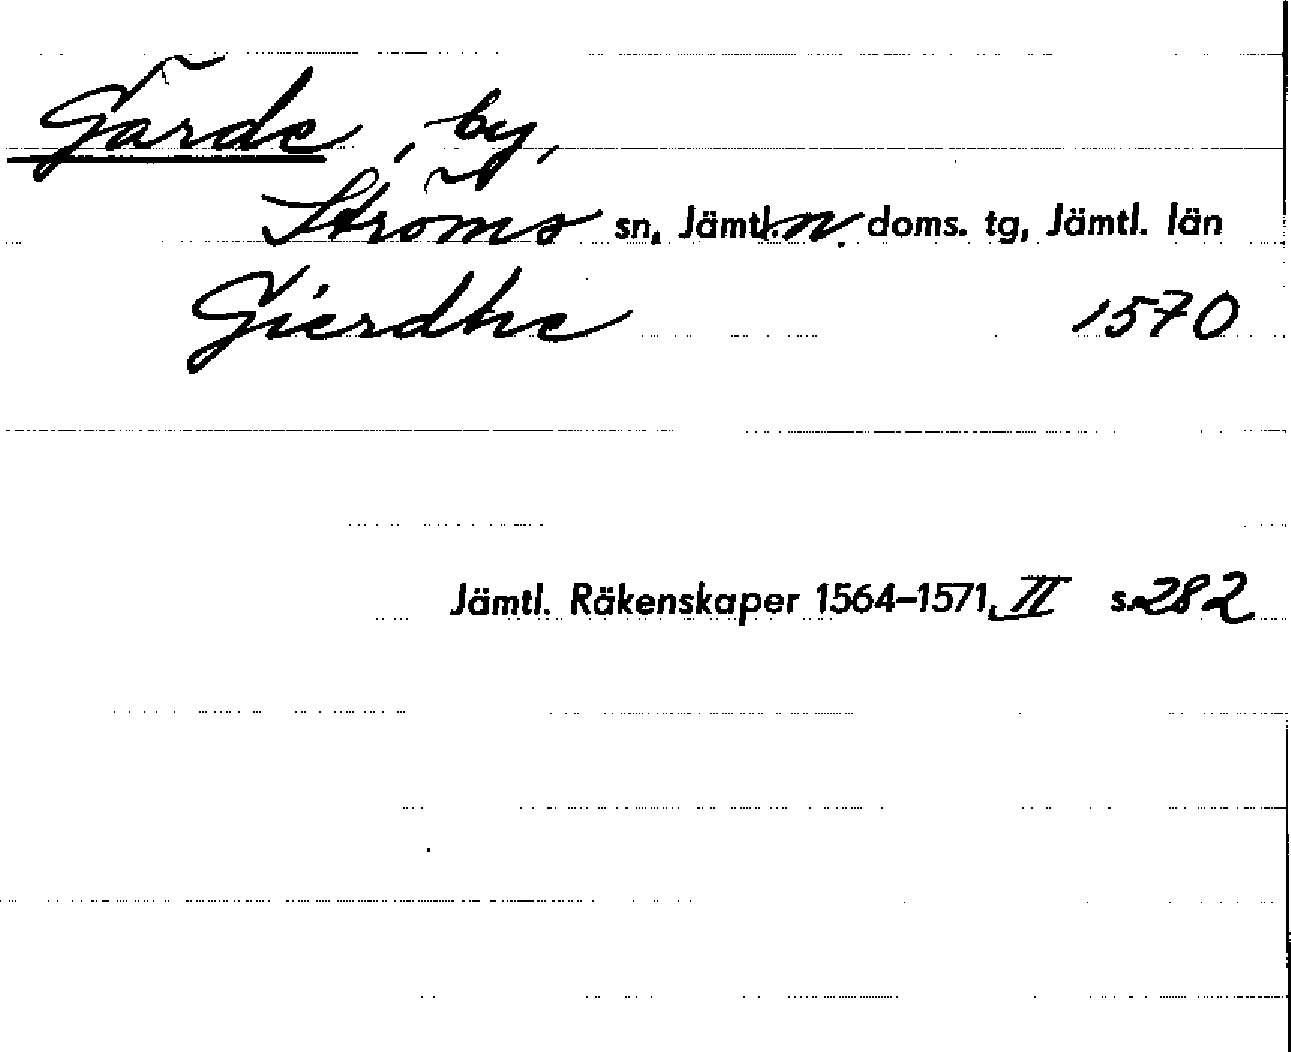 Gärde, by,
Ströms sn, Jämtl. n. doms. tg, Jämtl. län
Gierdhe 1570
Jämtl. Räkenskaper 1564–1571, II s. 282